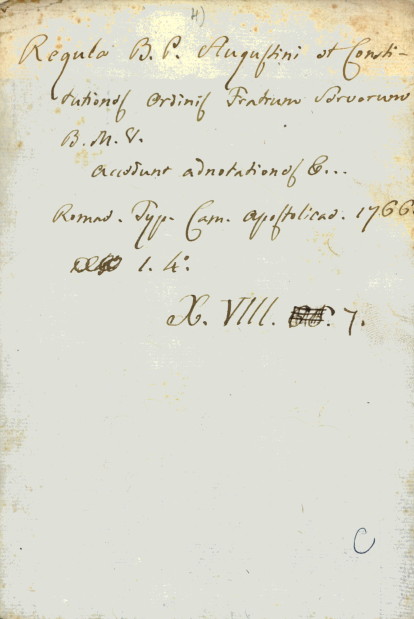 4)
Regula B. P. Augustini et Consti-
tutiones Ordinis Fratrum Servorum
B. M. V.
accedunt adnotationes &...
Romae. Typ. Cam. Apostolicae. 1766.
1. 4°.
X. VIII. 7.
C